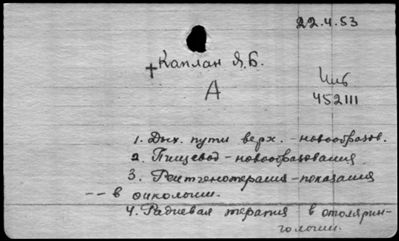 22.4.53
+Каплан Я.Б.
Шиб
А
452111
1. Дых. пути верх. - новообразов.
2. Пищевод - новообразования
3. Рентгенотерапия - показания
-- в онкологии.
4. Радиевая терапия в отоларин-
гологии.